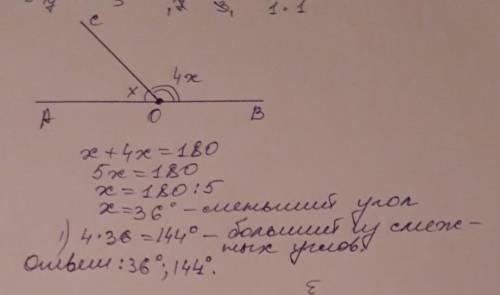 C
x 4x
A O B
x + 4x = 180
5x = 180
x = 180 : 5
x = 36° - меньший угол
1) 4·36 = 144° - больший из смеж-
ных углов.
Ответ: 36°; 144°.